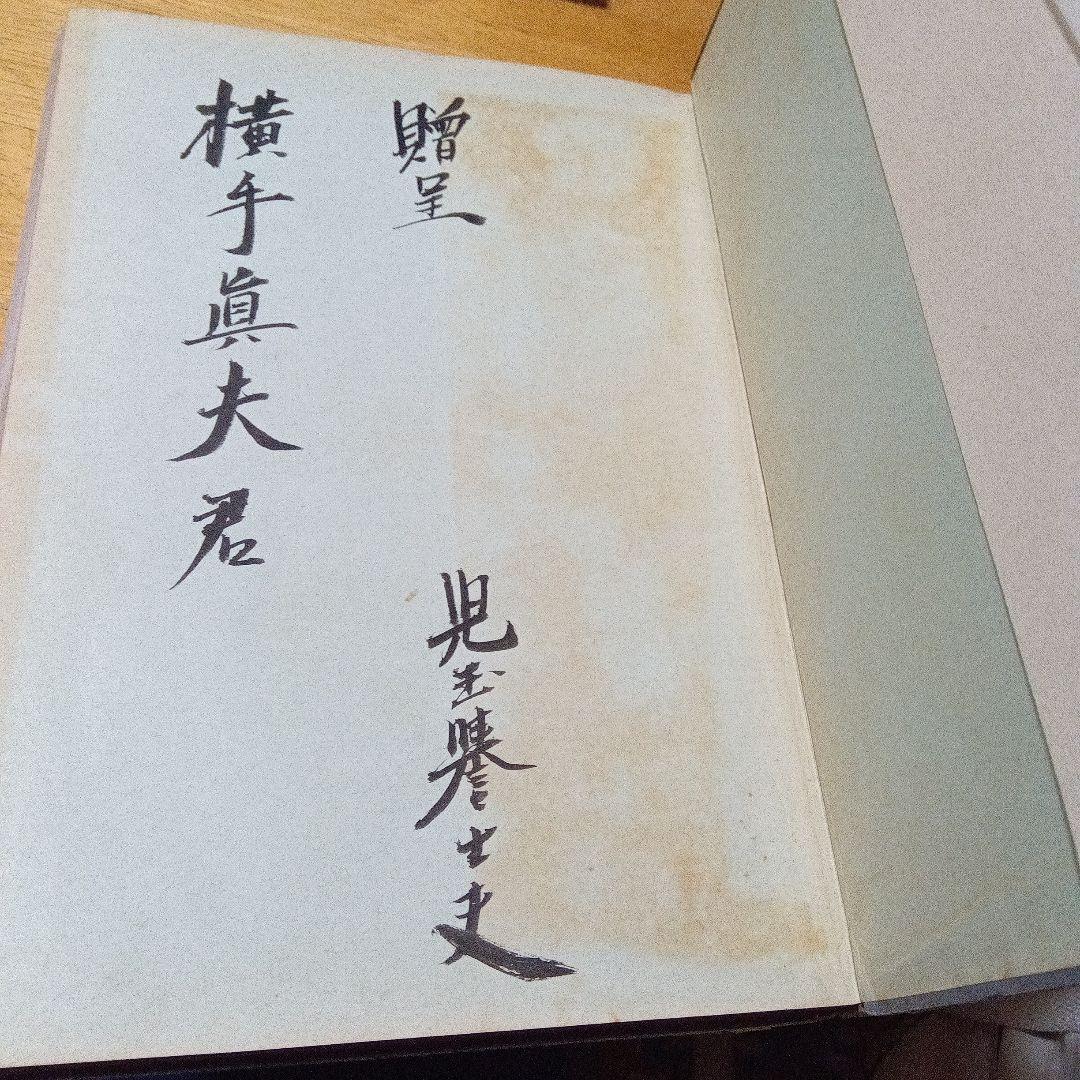 贈呈
児玉誉士夫
横手眞夫君